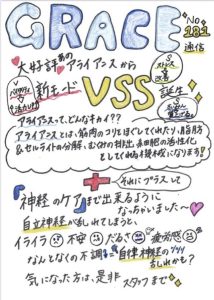 GRACE
No 181
通信
大好評のあの
アライアンスから
新モード
VSS
誕生
ストレス
改善
アライアンスって、どんなキカイ??
アライアンスとは、筋肉のコリをほぐしてくれたり、脂肪
&セルライトの分解、むくみの排出、表細胞の活性化
をしてくれる機械になります!
それにプラスして
『神経のケア』まで出来るように
なっちゃいました〜♡
自立神経が乱れてしまうと、
イライラ 不安 だるさ 疲労感
なんとなくの不調... 自律神経の乱れ
かも?
気になった方は、是非
スタッフまで